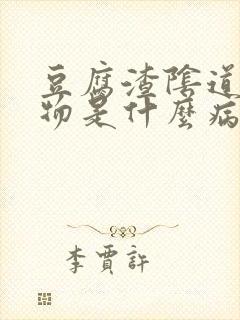 豆腐渣陰道
物是什麼病
李賈許